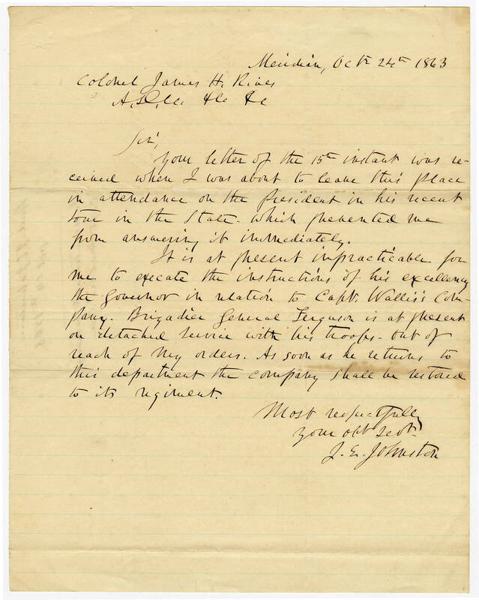 Meridian, Octr 24th 1863
Colonel James H. Rives
A.D.C. &c &c &c
Sir,
Your letter of the 15th instant was re-
ceived when I was about to leave this place
in attendance on the President in his recent
tour in the State. which prevented me
from answering it immediately.
It is at present impracticable for
me to execute the instructions of his excellency
the Governor in relation to Capt. Wallis's Com-
pany. Brigadier General Ferguson is at present
on detached service with his troops. out of
reach of my orders. As soon as he returns to
this department the company shall be restored
to its regiment.
Most respectfully
Your obt Servt
J. E. Johnston